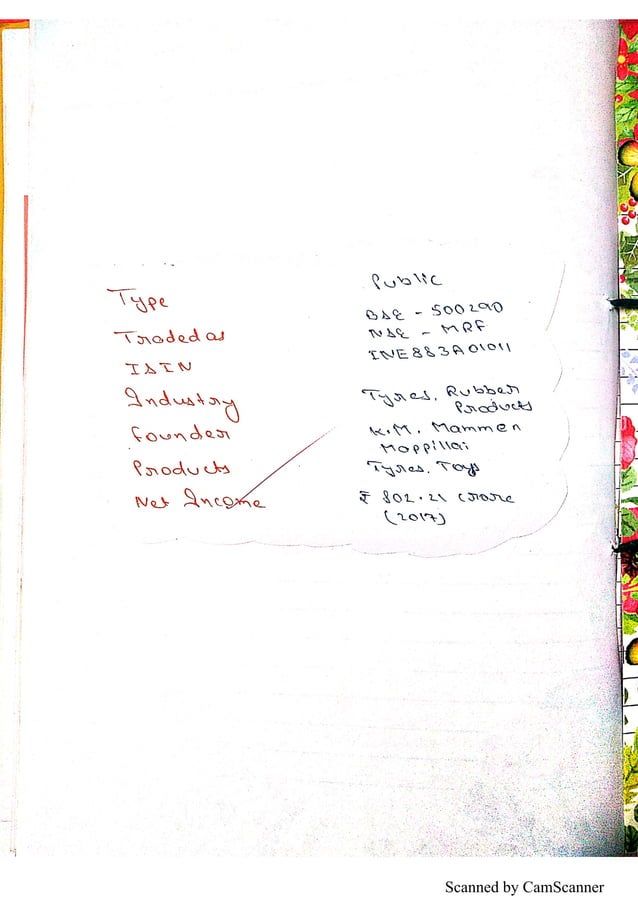 Type Public
Traded as BSE - 500290
NSE - MRF
ISIN INE883A01011
Industry Tyres, Rubber
Products
Founder K.M. Mammen
Mappillai
Products Tyres, Toys
Net Income ₹ 802.21 crore
(2017)
Scanned by CamScanner